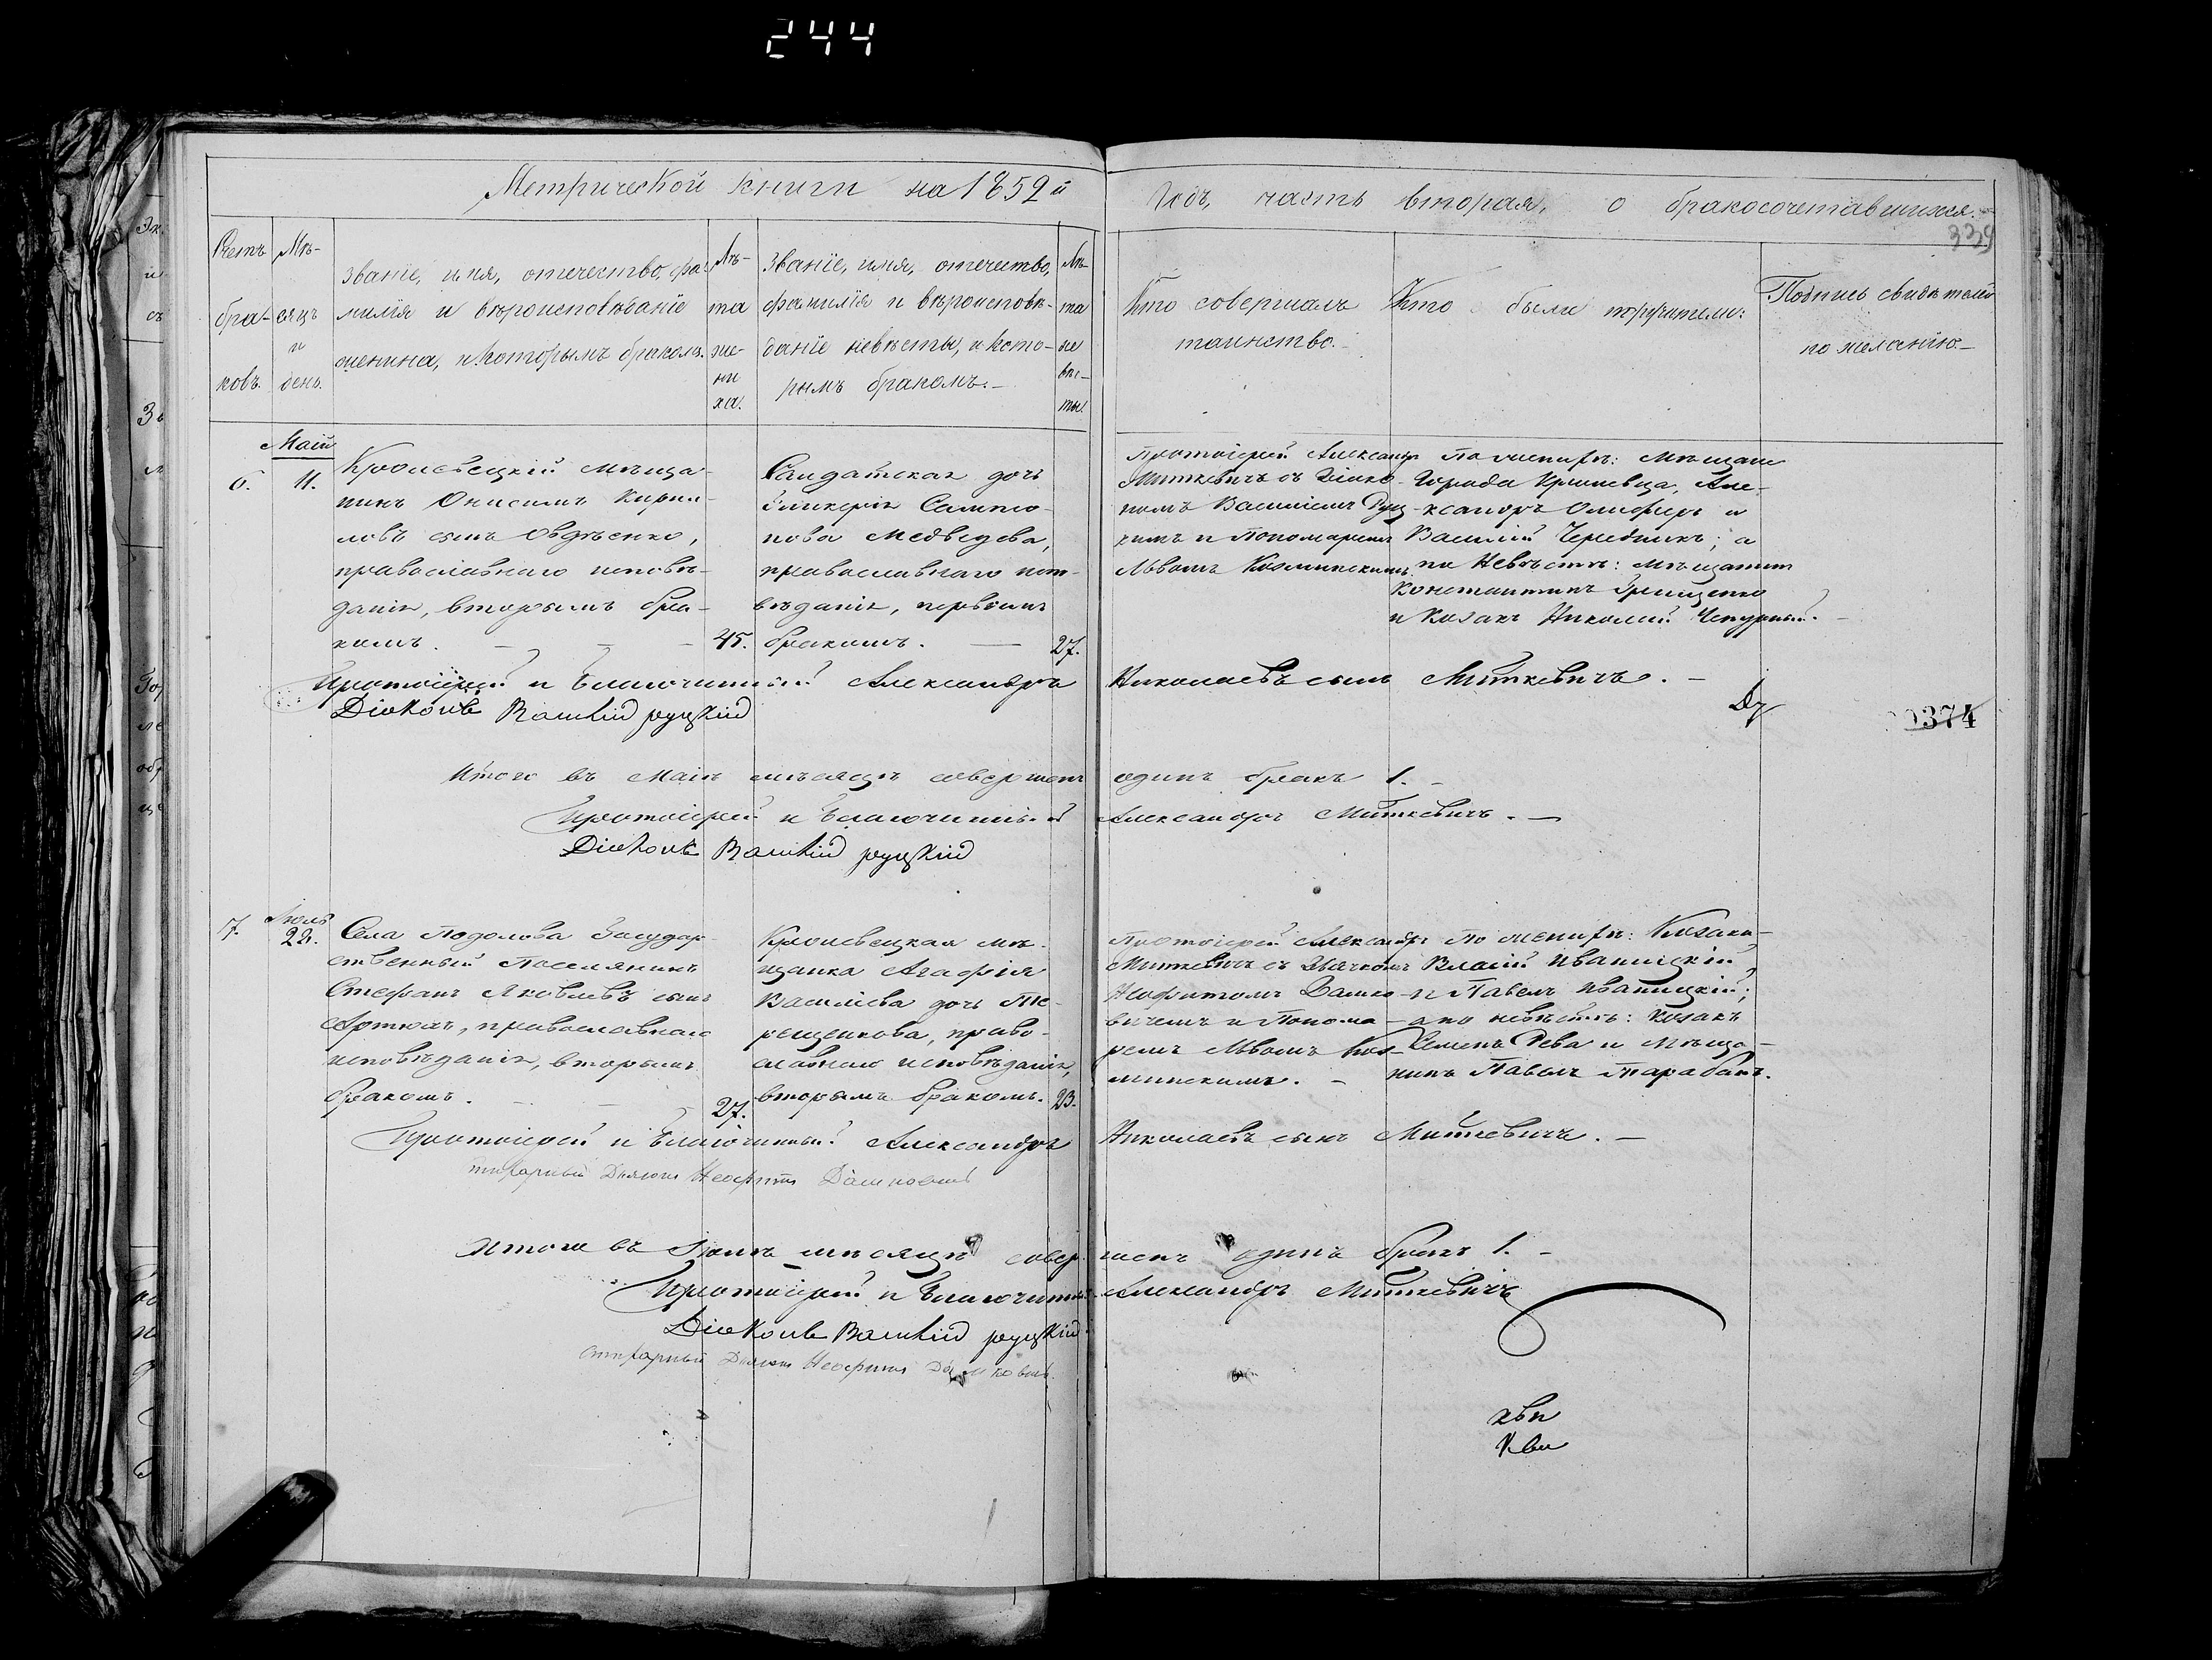 244
Метрической книги на 1859й
Годъ, часть вторая, о бракосочетавшихся.
339
Счетъ браковъ.
Мѣсяцъ и день.
Званіе, имя, отечество, фамилія и вѣроисповѣданіе
женина, и которымъ бракомъ.
Лѣта жениха.
Званіе, имя, отечество,
фамилія и вѣроисповѣданіе невѣсты, и которымъ бракомъ.–
Лѣта невѣсты.
Кто совершалъ
таинство.–
Кто были поручители:
Подпись свидѣтелей
по желанію.–
Маій
6.
11.
Кролевецкій мѣща-
нинъ Онисимъ Кирил-
ловъ сынъ Овдѣенко,
православнаго исповѣ-
данія, вторымъ бра-
комъ.
45.
Салдатская дочь
Гликерія Самсо-
нова Медведева,
православнаго испо-
вѣданія, первымъ
бракомъ.
27.
Протоіерей Александръ
Миткевичъ съ Діако-
номъ Василіемъ Руц-
кимъ и Пономаремъ
Львомъ Козминскимъ.
По женихѣ: мѣщане
Города Кролевца, Але-
ксандръ Олиферъ и
Василій Чередникъ; а
по Невѣстѣ: мѣщанинъ
Константинъ Грищенко
и Козакъ Николай Чепурный.
Протоіерей и Благочинный Александръ Николаевъ сынъ Миткевичъ.–
Діаконъ Василій Руцкій
374
Итого въ Маіѣ мѣсяцѣ совершенъ одинъ бракъ 1.–
Протоіерей и Благочинный Александръ Миткевичъ.–
Діаконъ Василій Руцкій
7.
22.
Села Подолова Государ-
ственный Поселянинъ
Стефанъ Яковлевъ сынъ
Артюхъ, православнаго
исповѣданія, вторымъ
бракомъ.
27.
Кролевецкая мѣ-
щанка Агафія
Василіева дочь Те-
рещенкова, право-
славнаго исповѣданія,
вторымъ бракомъ.
23.
Протоіерей Александръ
Миткевичъ съ Дьячкомъ
Неофитомъ Дашко-
вичемъ и Понома-
ремъ Львомъ Коз-
минскимъ.–
По женихѣ: Козаки
Власій Иваницкій
и Павелъ Иваницкій;
а по невѣстѣ: Козакъ
Семенъ Рева и мѣща-
нинъ Павелъ Тарабанъ.
Протоіерей и Благочинный Александръ Николаевъ сынъ Миткевичъ.–
Дьячокъ Неофитъ Дашковичъ
Итого въ мѣсяцѣ совершенъ одинъ бракъ 1.–
Протоіерей и Благочинный Александръ Миткевичъ
Діаконъ Василій Руцкій
Дьячокъ Неофитъ Дашковичъ.